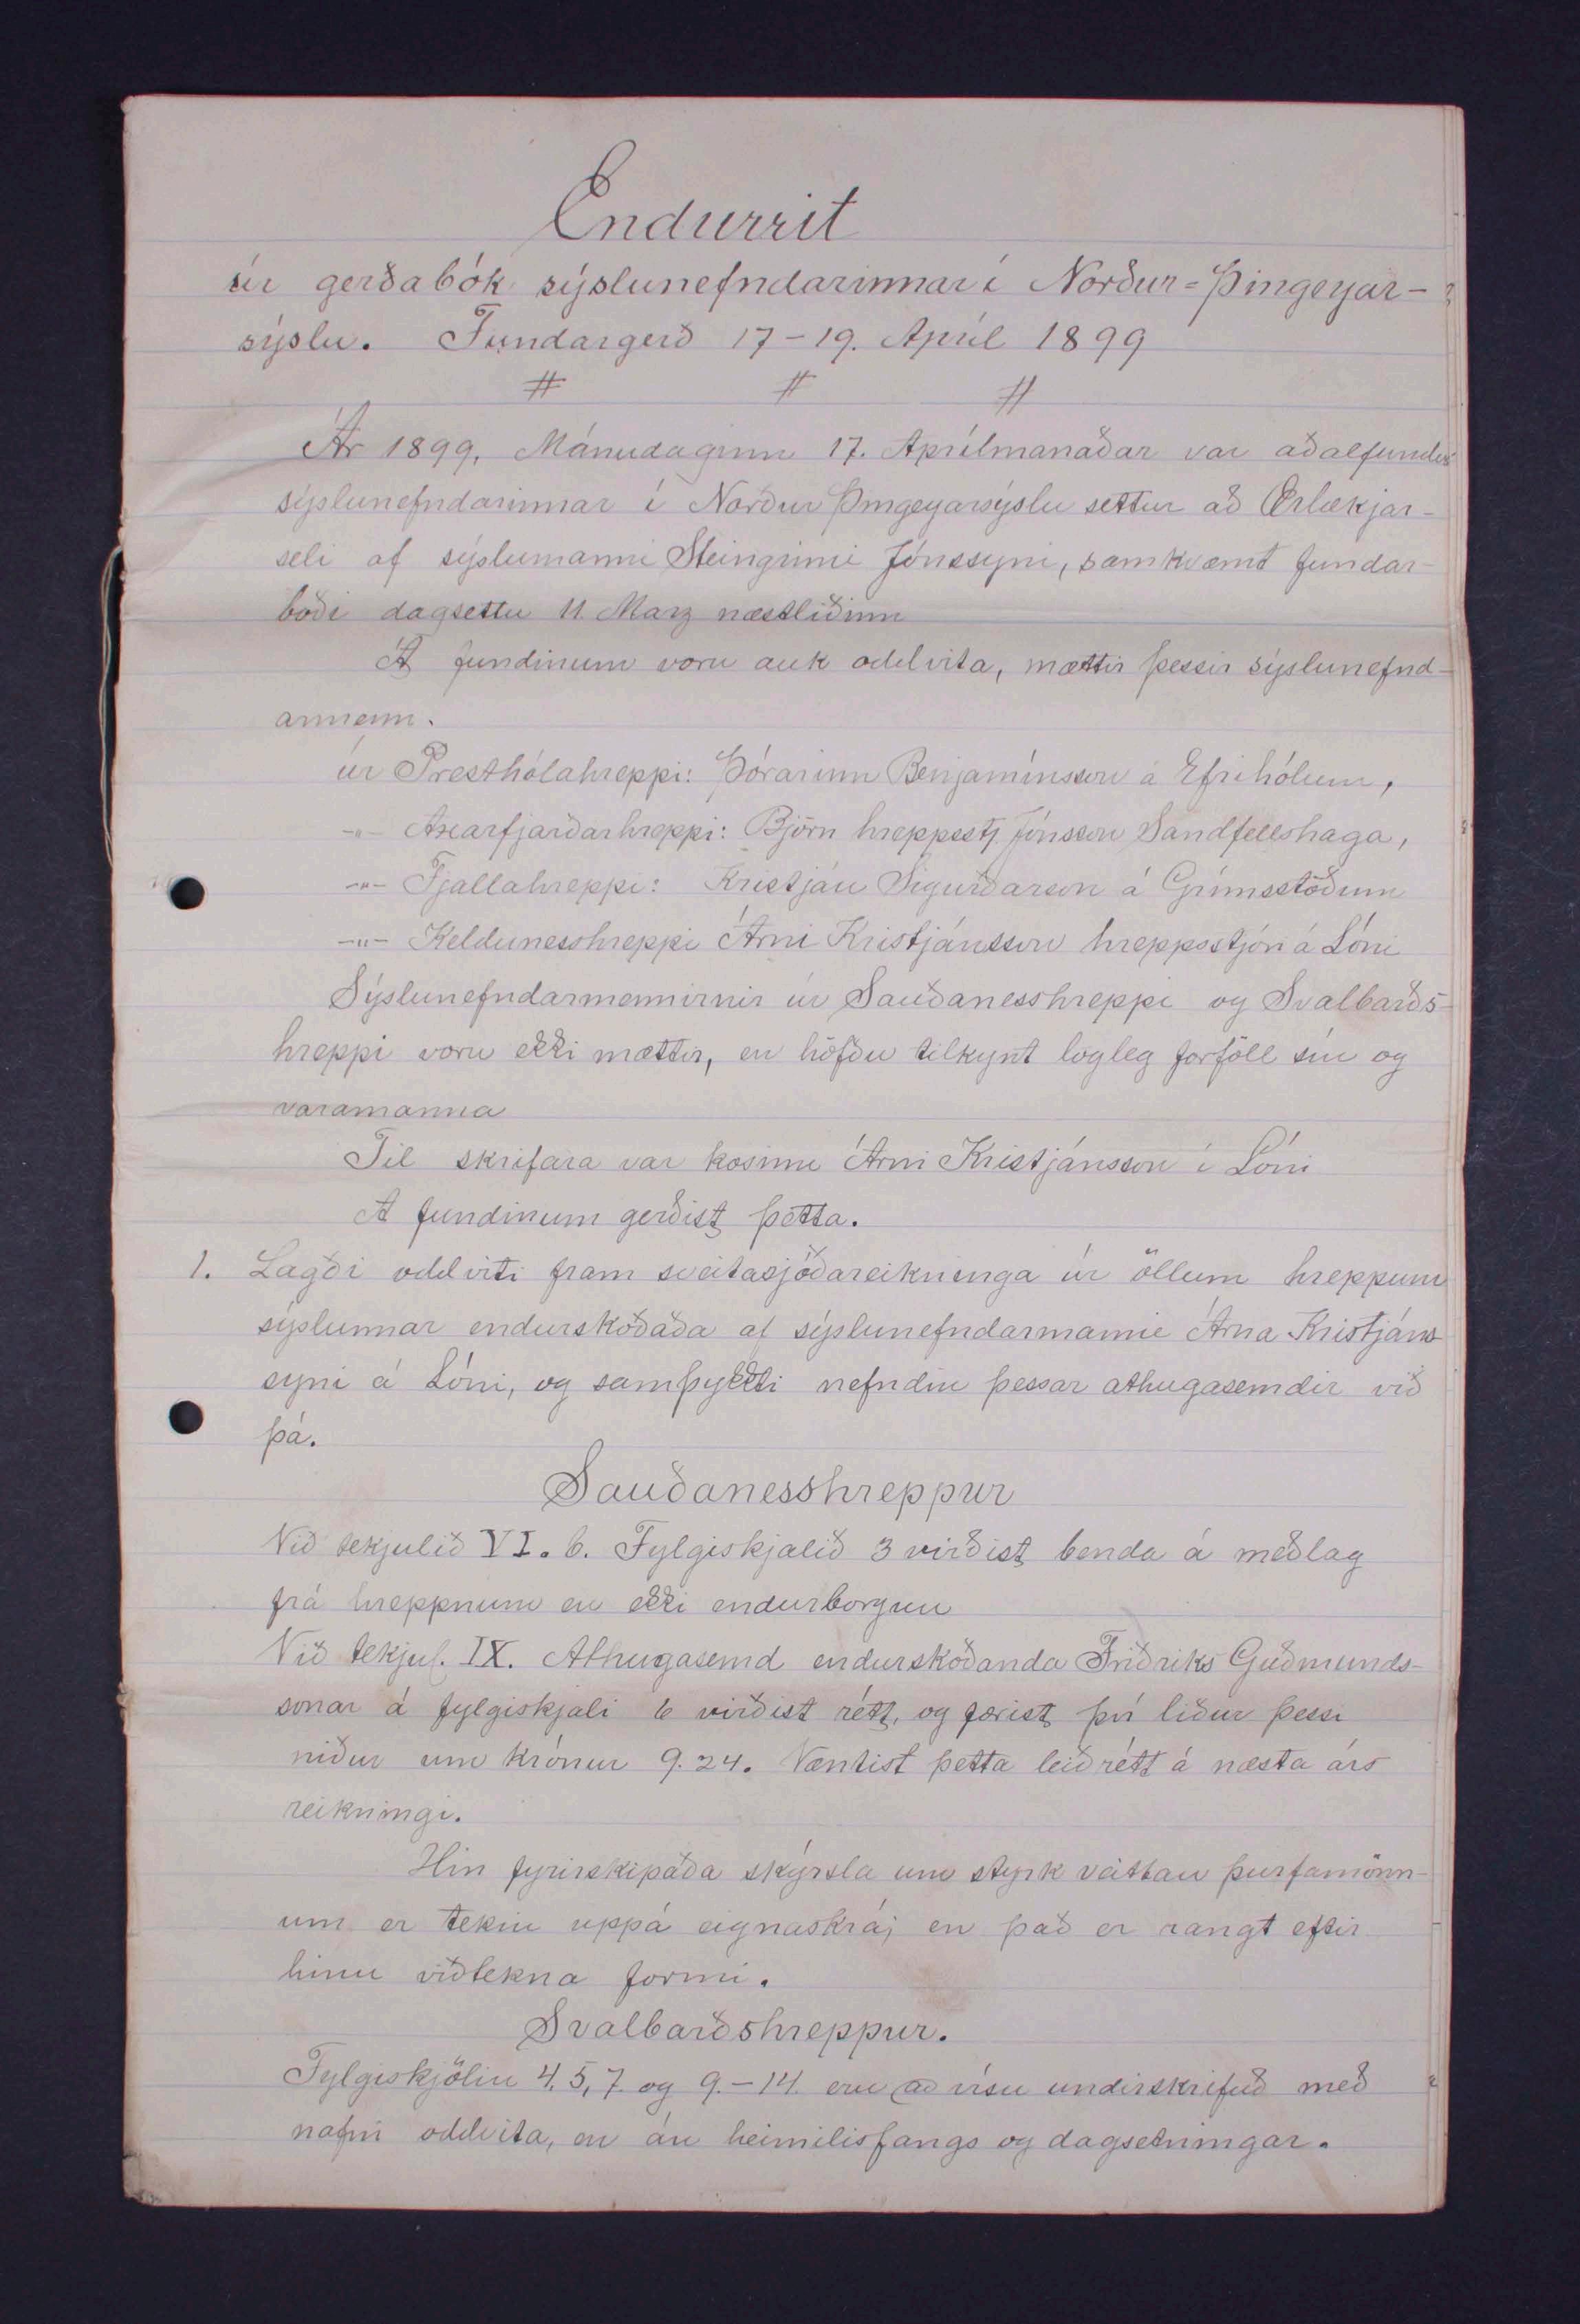 Endurrit
úr gerðabók sýslunefndarinnar í Norður=Þingeyar-
sýslu. Fundargerð 17-19. Apríl 1899
# # #
Ár 1899, Mánudaginn 17. Aprílmanaðar var aðalfundur
sýslunefndarinnar í Norður Þingeyarsýslu settur að Ærlækjar-
seli af sýslumanni Steingrími Jónssyni, samkvæmt fundar-
boði dagsettu 11. Marz næstliðinn
Á fundinum voru auk oddvita, mættir þessir sýslunefnd-
armenn.
úr Presthólahreppi: Þórarinn Benjamínsson á Efrihólum,
-"- Axarfjarðarhreppi: Björn hreppsstj. Jónsson Sandfellshaga,
-"- Fjallahreppi: Kristján Sigurðarson á Grímsstöðum
-"- Keldunesshreppi Árni Kristjánsson hreppsstjóri á Lóni
Sýslunefndarmennirnir úr Sauðanesshreppi og Svalbarðs-
hreppi voru ekki mættir, en höfðu tilkynt lögleg forföll sín og
varamanna
Til skrifara var kosinn Árni Kristjánsson í Lóni
A fundinum gerðist þetta.
1. Lagði oddviti fram sveitasjóðareikninga úr öllum hreppum
sýslunnar endurskoðaða af sýslunefndarmanni Árna Kristjáns-
syni á Lóni, og samþykkti nefndin þessar athugasemdir við
þá.
Sauðanesshreppur
Við tekjulið VI. b. Fylgiskjalið 3 virðist benda á meðlag
frá hreppnum en ekki endurborgun
Við tekjul. IX. Athugasemd endurskoðanda Friðriks Guðmunds-
sonar á fylgiskjali 6 virðist rétt, og færist því liður þessi
niður um krónur 9.24. Væntist þetta leiðrétt á næsta árs
reikningi.
Hin fyrirskipaða skýrsla um styrk veittan þurfamönn-
um er tekin uppá eignaskrá; en það er rangt eftir
hinu viðtekna formi.
Svalbarðshreppur.
Fylgiskjölin 4, 5, 7 og 9.-14. eru að vísu undirskrifuð með
nafni oddvita, en án heimilisfangs og dagsetningar.